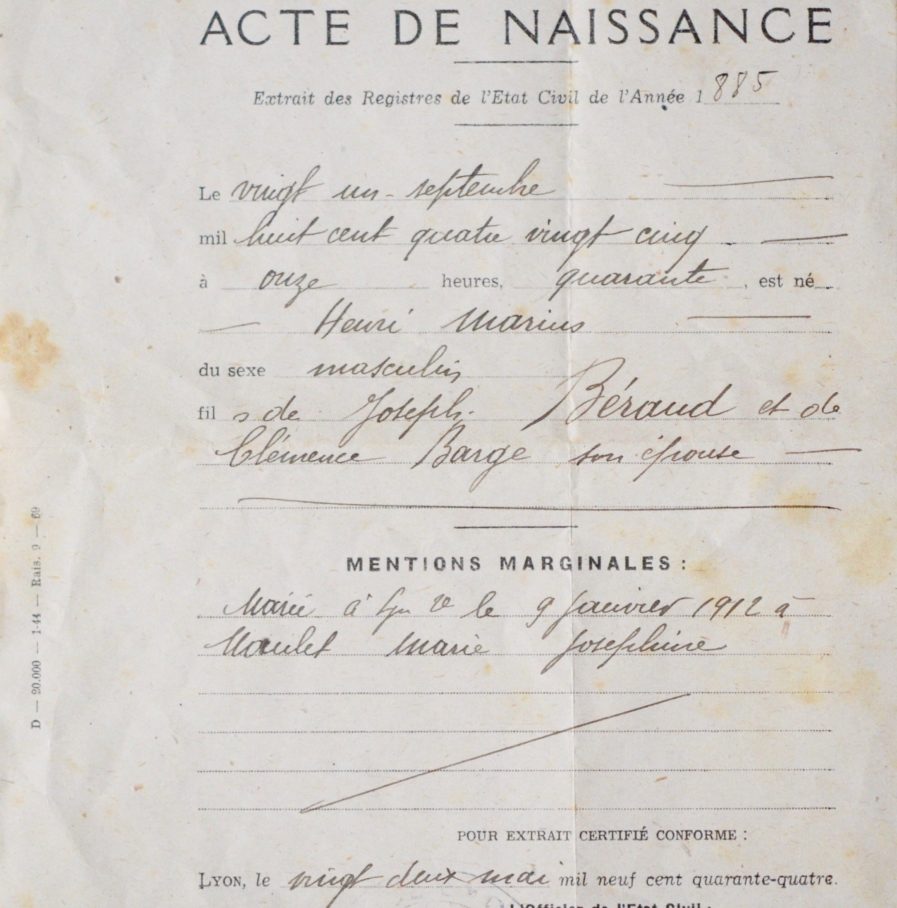 ACTE DE NAISSANCE
Extrait des Registres de l'Etat Civil de l'Année 1885
Le vingt un septembre
mil huit cent quatre vingt cinq
à onze heures, quarante, est né
Henri Marius
du sexe masculin
fils de Joseph Béraud et de
Clémence Barge son épouse
MENTIONS MARGINALES :
Marié à le 9 Janvier 1912 à
Maulet Marie Joséphine
POUR EXTRAIT CERTIFIÉ CONFORME :
LYON, le vingt deux mai mil neuf cent quarante-quatre.
L'Officier de l'Etat Civil :
D — 20.000 — 1-44 — Rais. 9 — 69